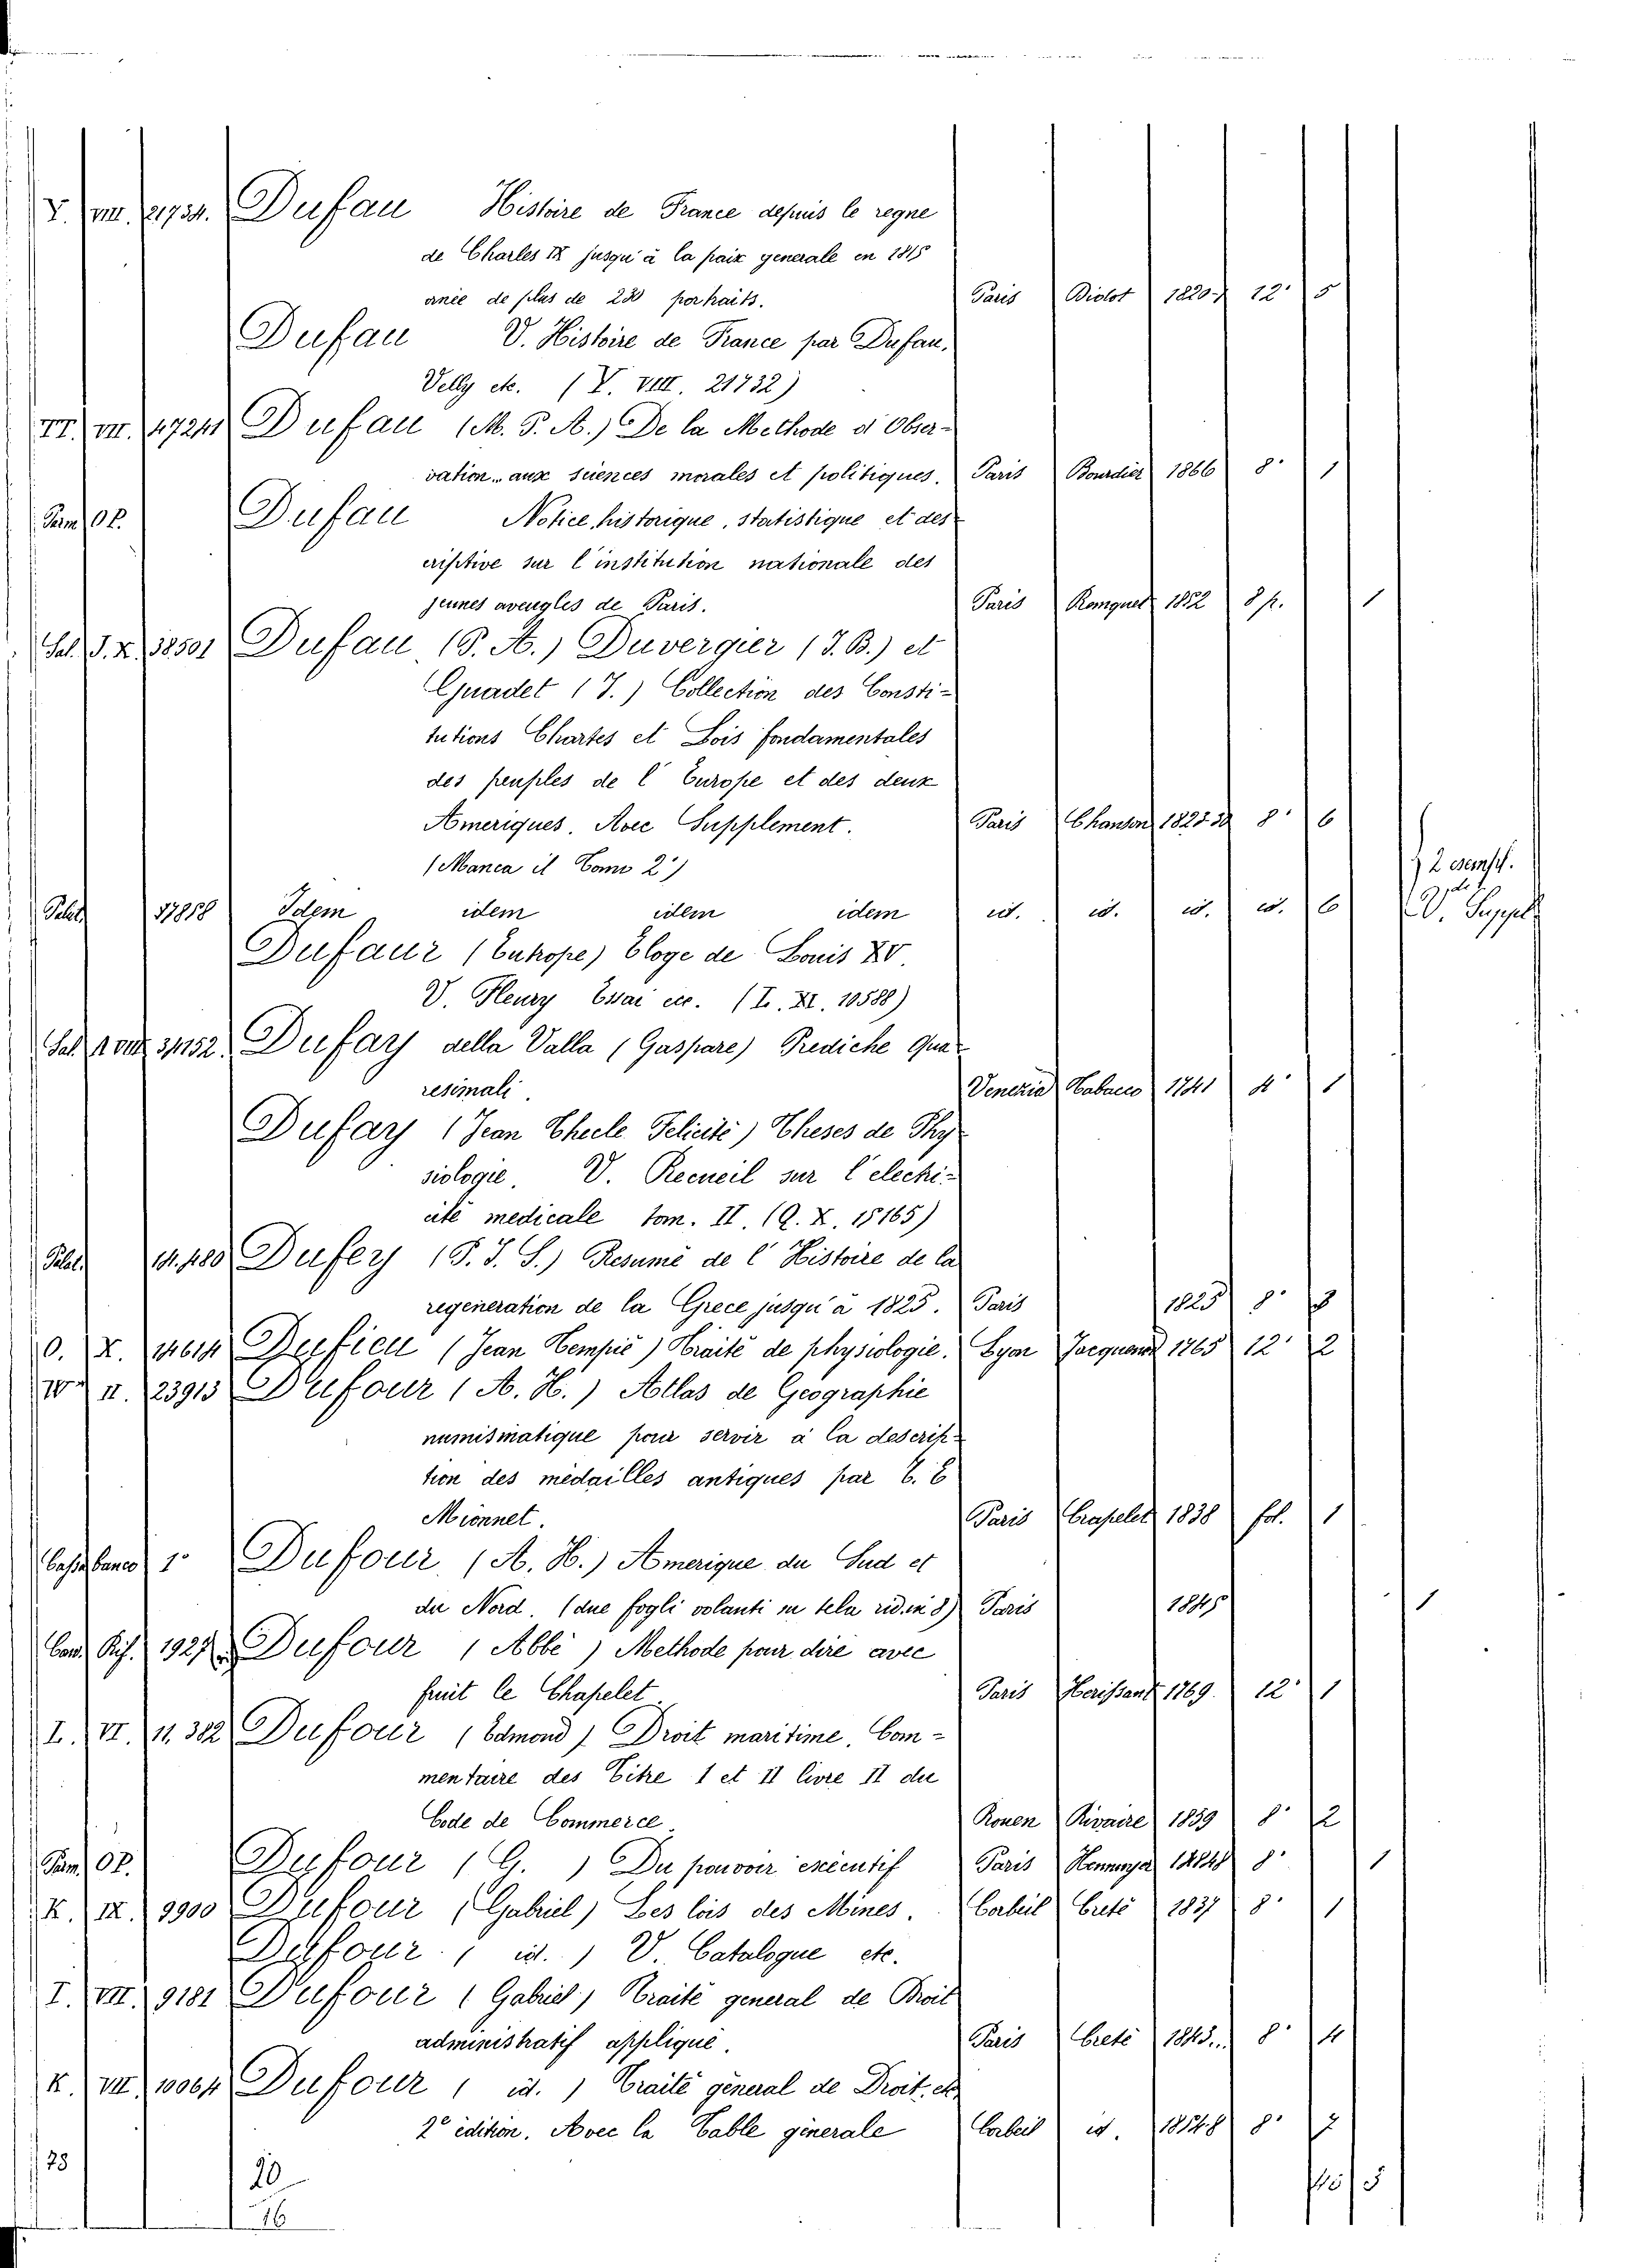 V. VIII. 21734. Dufau Histoire de France depuis le regne
de Charles IX jusqu'à la paix generale en 1815
ornée de plus de 230 portraits. Paris 1820 12° 5
Dufau V. Histoire de France par Dufau,
Velly etc. (V. VIII. 21732)
VII. 47241 Dufau (M. P. A.) De la Methode d'Obser-
vation.. aux sciences morales et politiques. Paris Bourdier 1866 8° 1
Dufau Notice historique, statistique et des-
criptive sur l'institution nationale des
jeunes aveugles de Paris. Paris 1852 8 p. 1
Sal. 38501 Dufau (P. A.) Duvergier (J. B.) et
Guadet (J.) Collection des Consti-
tutions Chartes et Lois fondamentales
des peuples de l'Europe et des deux
Ameriques. Avec Supplement. Paris Chanson 8° 6
(Manca il Tomo 2°) 2 esempl.
Palat. 17858 Idem idem idem idem id. id. id. id. 6 V. Suppl.
Dufaur (Eutrope) Eloge de Louis XV.
V. Fleury Essai etc. (I. XI. 10588)
Sal. 31152 Dufay della Valla (Gaspare) Prediche Qua-
resimali. Venezia 1741 4° 1
Dufay (Jean Thecle Felicité) Theses de Phy-
siologie. V. Recueil sur l'electri-
cité medicale tom. II. (Q. X. 15165)
Palat. 14.480 Dufey (P. J. S.) Resumé de l'Histoire de la
regeneration de la Grece jusqu'à 1825. Paris 1825 8°
O. X. 14614 Dufieu (Jean Tempié) Traité de physiologie. Lyon Jacquenod 1765 12° 2
II. 23913 Dufour (A. H.) Atlas de Geographie
numismatique pour servir à la descrip-
tion des médailles antiques par T. E
Mionnet. Paris Crapelet 1838 fol. 1
1° Dufour (A. H.) Amerique du Sud et
du Nord. (due fogli volanti in tela rid. in 8) Paris 1845 1
1927 Dufour (Abbé) Methode pour dire avec
fruit le Chapelet. Paris Herissant 1769. 12° 1
I. VI. 11.382 Dufour (Edmond) Droit maritime. Com-
mentaire des Titre 1 et II livre II du
Code de Commerce. Rouen Rivaire 1859 8° 2
Dufour (G. ) Du pouvoir executif Paris Hennuyer 8° 1
K. IX. 9900 Dufour (Gabriel) Les lois des Mines. Corbeil Creté 1837 8° 1
Dufour ( id. ) V. Catalogue etc.
I. VII. 9181 Dufour (Gabriel) Traité general de Droit
administratif appliqué. Paris Creté 1843.. 8° 4
K. VII. 10064 Dufour ( id. ) Traité géneral de Droit. etc
2° édition. Avec la Table génerale Corbeil id. 8° 7
20
16